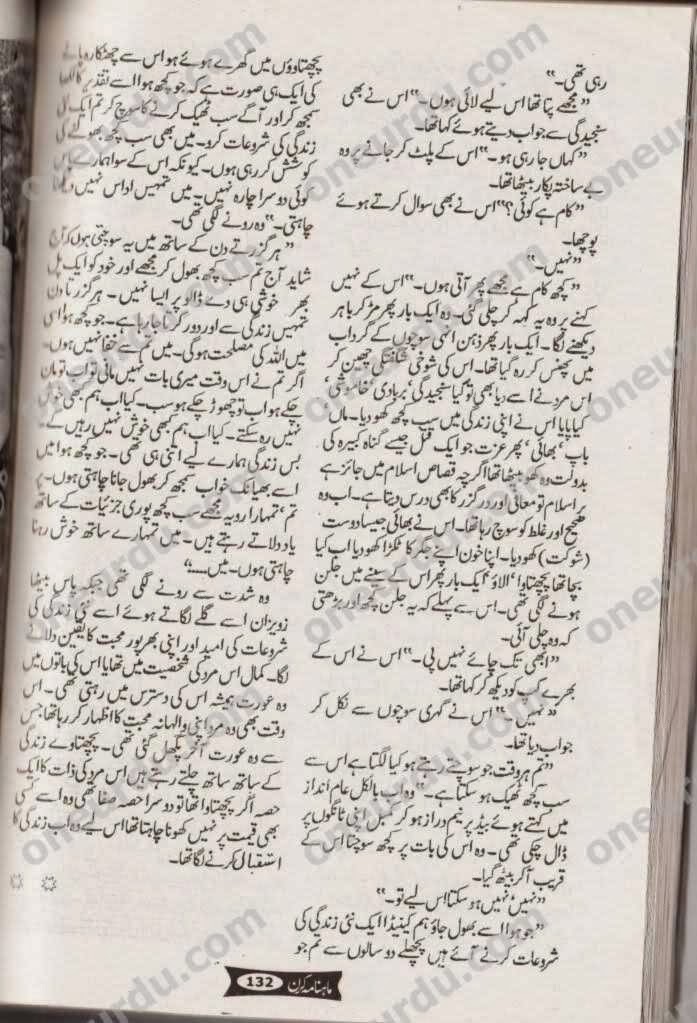 رہی تھی۔“
”مجھے پتا تھا اس لیے لائی ہوں۔“ اس نے بھی
سنجیدگی سے جواب دیتے ہوئے کہا تھا۔
”کہاں جا رہی ہو۔“ اس کے پلٹ کر جانے پر وہ
بے ساختہ پکار بیٹھا تھا۔
”کام ہے کوئی؟“ اس نے بھی سوال کرتے ہوئے
پوچھا۔
”نہیں۔“
”کچھ کام ہے مجھے پھر آتی ہوں۔“ اس کے نہیں
کہنے پر وہ یہ کہہ کر چلی گئی۔ وہ ایک بار پھر مڑ کر باہر
دیکھنے لگا۔ ایک بار پھر ذہن انہی سوچوں کے گرداب
میں پھنس کر رہ گیا تھا۔ اس کی شوخی شگفتگی چھین کر
اس مرد نے اسے دیا بھی تو کیا سنجیدگی‘ بربادی‘ خاموشی‘
کیا پایا اس نے اپنی زندگی میں سب کچھ کھو دیا۔ ماں
باپ‘ بھائی‘ پھر عزت جو ایک قتل جیسے گناہ کبیرہ کی
بدولت وہ کھو بیٹھا تھا اگرچہ قصاص اسلام میں جائز ہے
پر اسلام تو معافی اور درگزر کا بھی درس دیتا ہے۔ اب وہ
صحیح اور غلط کو سوچ رہا تھا۔ اس نے بھائی جیسا دوست
(شوکت) کھو دیا۔ اپنا خون اپنے جگر کا ٹکڑا کھو دیا اب کیا
بچا تھا پچھتاوا‘ الاؤ‘ ایک بار پھر اس کے سینے میں جلن
ہونے لگی تھی۔ اس سے پہلے کہ یہ جلن کچھ اور بڑھتی
کہ وہ چلی آئی۔
”ابھی تک چائے نہیں پی۔“ اس نے اس کے
بھرے کپ کو دیکھ کر کہا تھا۔
”نہیں۔“ اس نے گہری سوچوں سے نکل کر
جواب دیا تھا۔
”تم ہر وقت جو سوچتے رہتے ہو کیا لگتا ہے اس سے
سب کچھ ٹھیک ہو سکتا ہے۔“ وہ اب بالکل عام انداز
میں کہتے ہوئے بیڈ پر نیم دراز ہو کر کمبل اپنی ٹانگوں پر
ڈال چکی تھی۔ وہ اس کی بات پر کچھ سوچتا اس کے
قریب آکر بیٹھ گیا۔
”نہیں‘ نہیں ہو سکتا اس لیے تو۔“
”جو ہوا اسے بھول جاؤ ہم کینیڈا ایک نئی زندگی کی
شروعات کرنے آئے ہیں پچھلے دو سالوں سے تم جو
پچھتاوؤں میں گھرے ہوئے ہو اس سے چھٹکارہ پانے
کی ایک ہی صورت ہے کہ جو کچھ ہوا اسے تقدیر کا لکھا
سمجھ کر اور آگے سب ٹھیک کرنے کا سوچ کر تم ایک
زندگی کی شروعات کرو۔ میں بھی سب کچھ بھولنے کی
کوشش کر رہی ہوں۔ کیونکہ اس کے سوا ہمارے پاس
کوئی دوسرا چارہ نہیں۔ میں تمہیں اداس نہیں دیکھنا
چاہتی۔“ وہ رونے لگی تھی۔
”ہر گزرتے دن کے ساتھ میں یہ سوچتی ہوں کہ آج
شاید آج تم سب کچھ بھول کر مجھے اور خود کو ایک پل
بھر خوشی ہی دے ڈالو پر ایسا نہیں۔ ہر گزرتا دن
تمہیں زندگی سے اور دور کرتا جا رہا ہے۔ جو کچھ ہوا اسی
میں اللہ کی مصلحت ہوگی۔ میں تم سے خفا نہیں ہوں۔
اگر تم نے اس وقت میری بات نہیں مانی تو اب تو مان
چکے ہو اب تو چھوڑ چکے ہو سب۔ کیا اب ہم بھی خوش
نہیں رہ سکتے۔ کیا اب ہم بھی خوش نہیں رہیں گے۔
بس زندگی ہمارے لیے اتنی ہی تھی۔ جو کچھ ہوا میں
اسے بھیانک خواب سمجھ کر بھول جانا چاہتی ہوں۔ پر
تم‘ تمہارا رویہ مجھے سب کچھ پوری جزئیات کے ساتھ
یاد دلاتے رہتے ہیں۔ میں تمہارے ساتھ خوش رہنا
چاہتی ہوں۔ میں.....“
وہ شدت سے رونے لگی تھی جبکہ پاس بیٹھا
زویزان اسے گلے لگاتے ہوئے اسے نئی زندگی کی
شروعات کی امید اور اپنی بھرپور محبت کا یقین دلانے
لگا۔ کمال اس مرد کی شخصیت میں تھا یا اس کی باتوں میں
وہ عورت ہمیشہ اس کی دسترس میں رہتی تھی۔ اس
وقت بھی وہ مرد اپنی والہانہ محبت کا اظہار کر رہا تھا جس
سے وہ عورت آخر پگھل گئی تھی۔ پچھتاوے زندگی
کے ساتھ ساتھ چلتے رہتے ہیں اس مرد کی ذات کا ایک
حصہ اگر پچھتاوا تھا تو دوسرا حصہ صفا تھی وہ اسے کسی
بھی قیمت پر نہیں کھونا چاہتا تھا اس لیے وہ اب زندگی کا
استقبال کرنے لگا تھا۔
ماہنامہ کرن 132
oneurdu.com